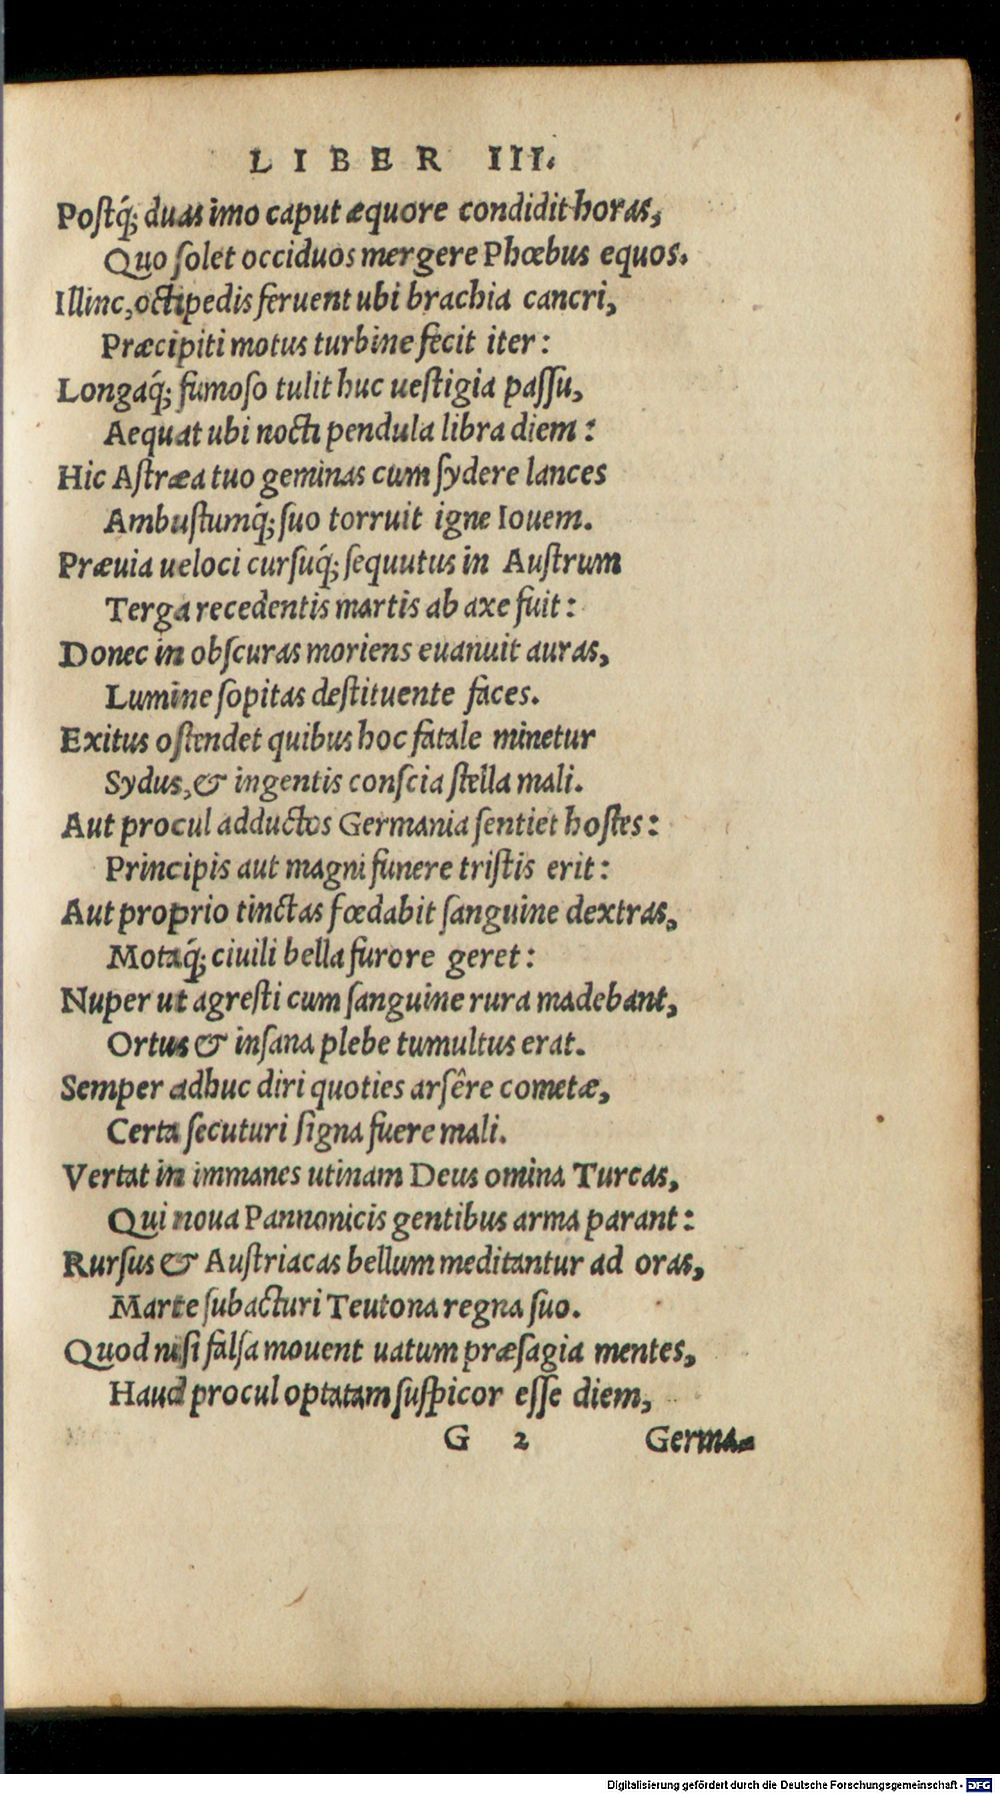 LIBER III.
Postq́; duas imo caput æquore condidit horas,
Quo solet occiduos mergere Phœbus equos.
Illinc, octipedis feruent ubi brachia cancri,
Præcipiti motus turbine fecit iter:
Longaq́; fumoso tulit huc uestigia passu,
Aequat ubi nocti pendula libra diem:
Hic Astræa tuo geminas cum sydere lances
Ambustumq́; suo torruit igne Iouem.
Præuia ueloci cursuq́; sequutus in Austrum
Terga recedentis martis ab axe fuit:
Donec in obscuras moriens euanuit auras,
Lumine sopitas destituente faces.
Exitus ostendet quibus hoc fatale minetur
Sydus, & ingentis conscia stella mali.
Aut procul adductos Germania sentiet hostes:
Principis aut magni funere tristis erit:
Aut proprio tinctas fœdabit sanguine dextras,
Motaq́; ciuili bella furore geret:
Nuper ut agresti cum sanguine rura madebant,
Ortus & insana plebe tumultus erat.
Semper adhuc diri quoties arsêre cometæ,
Certa secuturi signa fuere mali.
Vertat in immanes utinam Deus omina Turcas,
Qui noua Pannonicis gentibus arma parant:
Rursus & Austriacas bellum meditantur ad oras,
Marte subacturi Teutona regna suo.
Quod nisi falsa mouent uatum præsagia mentes,
Haud procul optatam suspicor esse diem,
G 2 Germa-
Digitalisierung gefördert durch die Deutsche Forschungsgemeinschaft - DFG